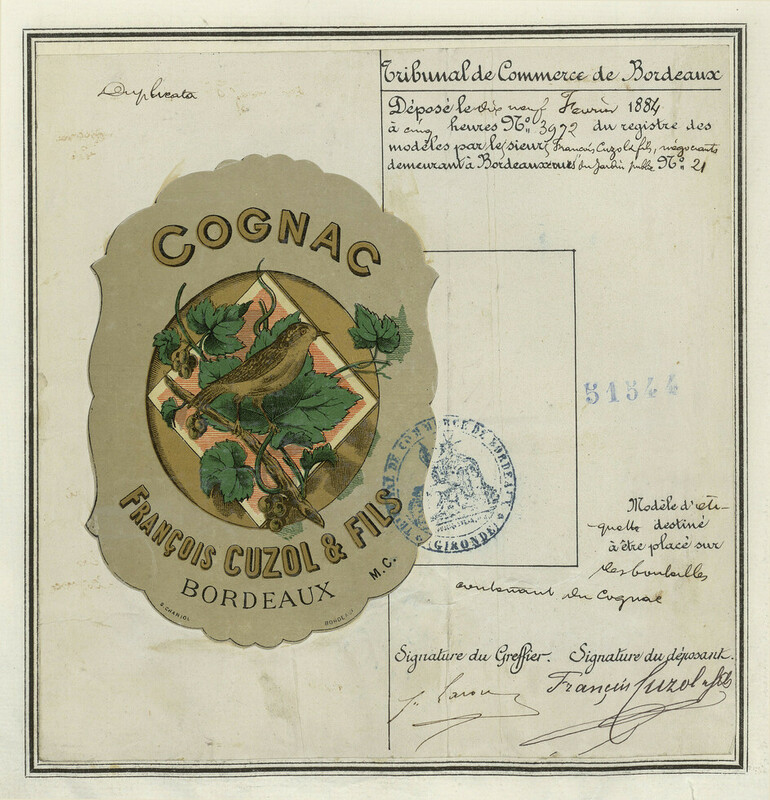 Duplicata
Tribunal de Commerce de Bordeaux
Déposé le dix neuf Fevrier 1884
à cinq heures N° 3972 du registre des
modèles par le sieurs François Cuzol & fils, négociants
demeurant à Bordeaux rue du Jardin public N° 21
COGNAC
FRANÇOIS CUZOL & FILS
BORDEAUX
M.C.
G. CHARIOL
BORDEAUX
51544
TRIBUNAL DE COMMERCE DE BORDEAUX
GIRONDE
Modèle d'éti-
quette destiné
à être placé sur
des bouteilles
contenant du Cognac
Signature du Greffier. Signature du déposant.
François Cuzol & fils